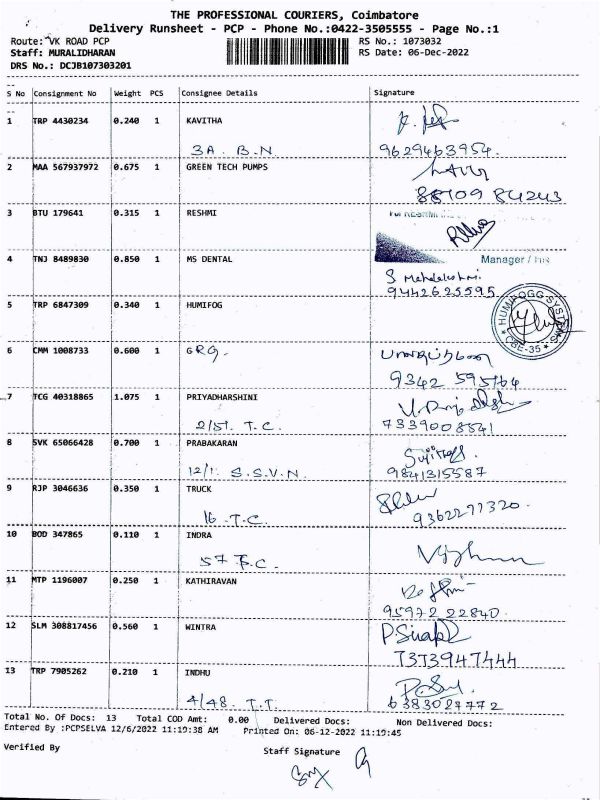 THE PROFESSIONAL COURIERS, Coimbatore
Delivery Runsheet - PCP - Phone No.:0422-3505555 - Page No.:1
Route: VK ROAD PCP
RS No.: 1073032
Staff: MURALIDHARAN
RS Date: 06-Dec-2022
DRS No.: DCJB107303201
S No Consignment No Weight PCS Consignee Details Signature
1 TRP 4430234 0.240 1 KAVITHA
3A. B.N 9629463954
2 MAA 567937972 0.675 1 GREEN TECH PUMPS
88709 84243
3 BTU 179641 0.315 1 RESHMI
4 TNJ 8489830 0.850 1 MS DENTAL Manager /
9442625595
5 TRP 6847309 0.340 1 HUMIFOG
HUMIFOGG SYSTEMS
CBE-35
6 CMM 1008733 0.600 1 GRG.
9342 595764
7 TCG 40318865 1.075 1 PRIYADHARSHINI
2/51. T.C. 7339008541
8 SVK 65066428 0.700 1 PRABAKARAN
12/1. S.S.V.N. 9841315587
9 RJP 3046636 0.350 1 TRUCK
16 T.C. 9362277320
10 BOD 347865 0.110 1 INDRA
57 T.C.
11 MTP 1196007 0.250 1 KATHIRAVAN
95972 22840
12 SLM 308817456 0.560 1 WINTRA
7373947444
13 TRP 7905262 0.210 1 INDHU
4/48. T.T. 6383027772
Total No. Of Docs: 13 Total COD Amt: 0.00 Delivered Docs: Non Delivered Docs:
Entered By :PCPSELVA 12/6/2022 11:19:38 AM Printed On: 06-12-2022 11:19:45
Verified By Staff Signature